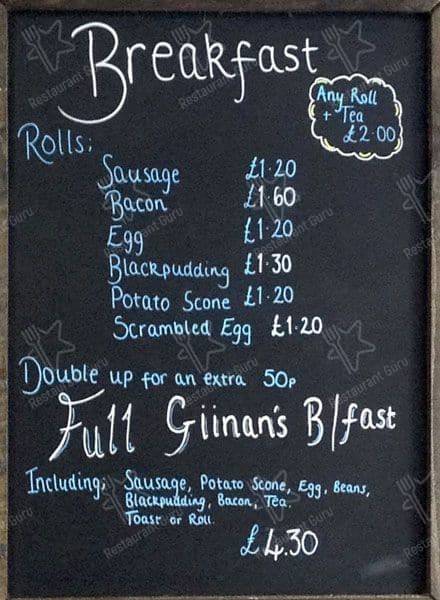 Breakfast
Any Roll
+ Tea
£2.00
Rolls:
Sausage £1.20
Bacon £1.60
Egg £1.20
Blackpudding £1.30
Potato Scone £1.20
Scrambled Egg £1.20
Double up for an extra 50p
Full Giinan's B/fast
Including; Sausage, Potato Scone, Egg, Beans,
Blackpudding, Bacon, Tea.
Toast or Roll.
£4.30
Restaurant Guru